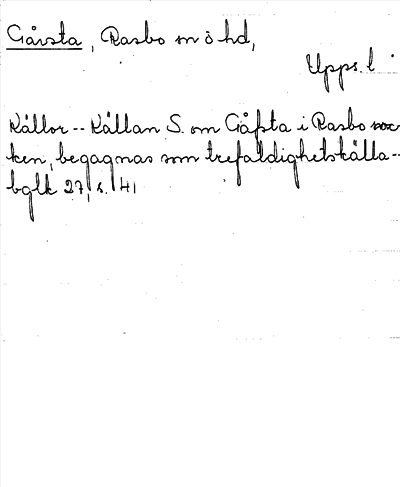 Gåvsta, Rasbo sn ö hd,
Upps. l
Källor -- Källan S. om Gåfsta i Rasbo soc-
ken, begagnas som trefaldighetskälla--
bglk 27, s. 41